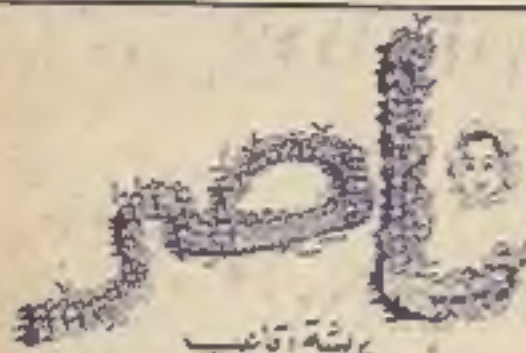 ناصر
بريشة